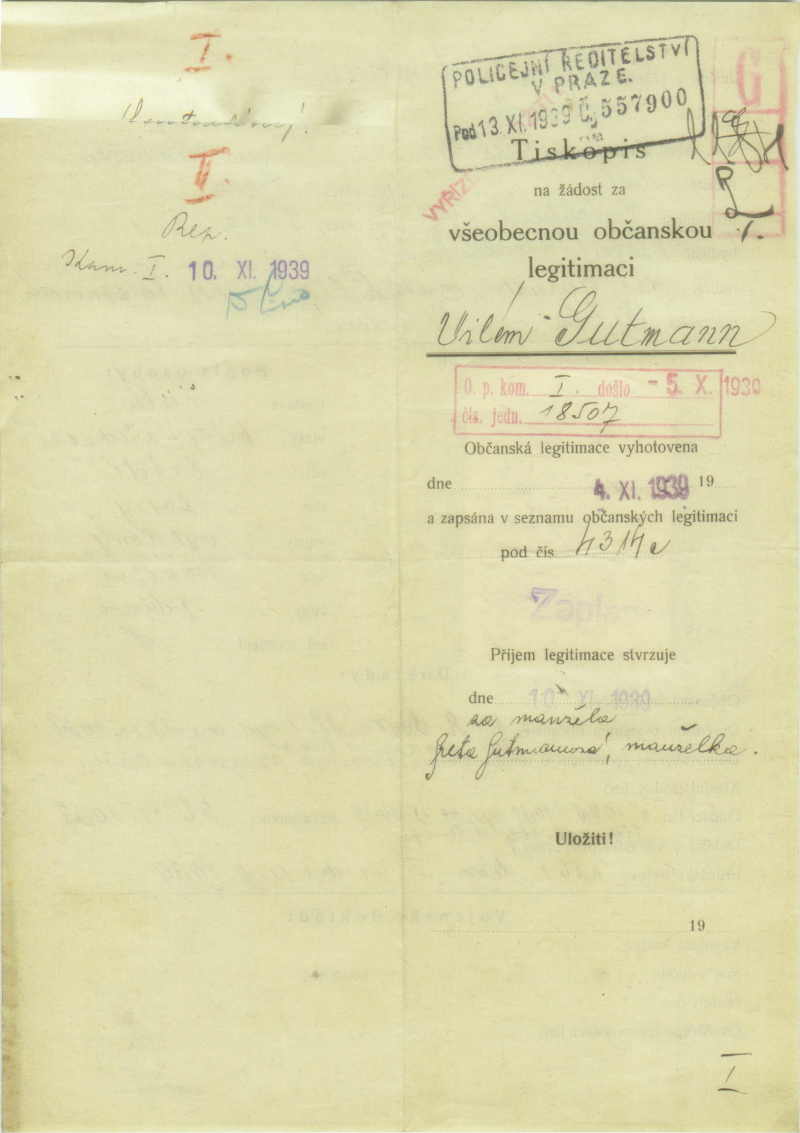 I.
II.
Rez.
Kom. I. 10. XI. 1939
POLICEJNÍ ŘEDITELSTVÍ
V PRAZE.
Pod 13. XI. 1939 Čj 557900
G
Tiskopis
na žádost za
všeobecnou občanskou
legitimaci
Vilém Gutmann
O. p. kom. I. došlo - 5. X. 1939
čís. jedn. 18507
Občanská legitimace vyhotovena
dne 4. XI. 1939 19
a zapsána v seznamu občanských legitimací
pod čís.
Zaplac
Příjem legitimace stvrzuje
dne 10 XI. 1939
za manžela
Greta Gutmannová, manželka.
Uložiti!
19
I